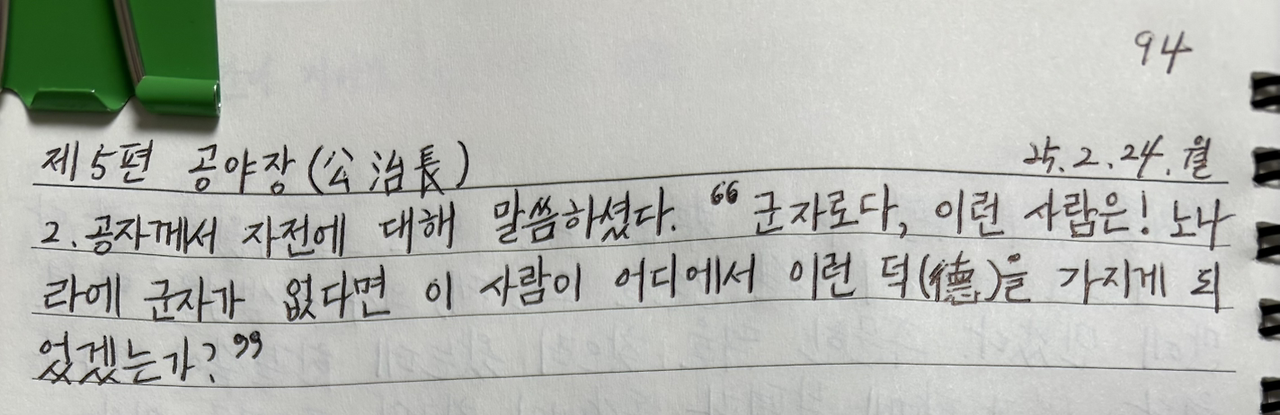 94
제5편 공야장(公治長) 25.2.24.월
2. 공자께서 자전에 대해 말씀하셨다. “군자로다, 이런 사람은! 노나
라에 군자가 없다면 이 사람이 어디에서 이런 덕(德)을 가지게 되
었겠는가?”